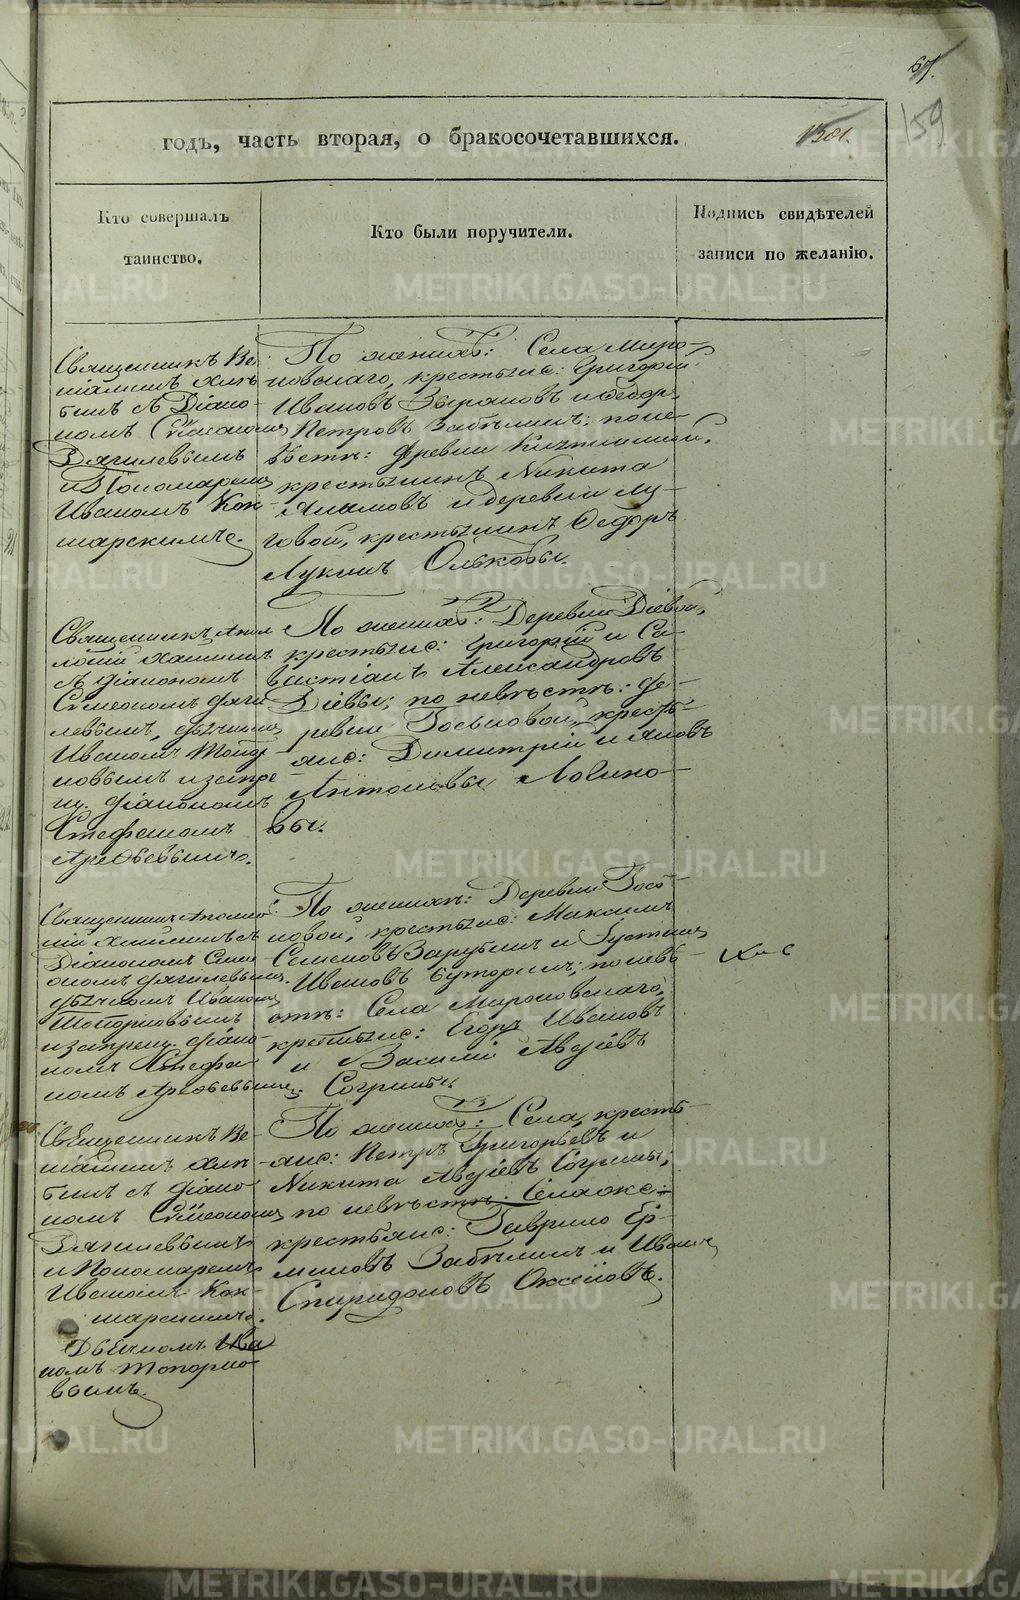 67.
159
годъ, часть вторая, о бракосочетавшихся.
Кто совершалъ
таинство.
Кто были поручители.
Подпись свидѣтелей
записи по желанію.
Священникъ Ве-
ніаминъ
съ Діако-
номъ Сѵмеономъ
Дягилевымъ
и Пономаремъ
Иваномъ Кок-
шарскимъ.
По женихѣ: Села Миро-
новскаго, крестьяне: Григорій
Ивановъ и Ѳедоръ
Петровъ Забѣлинъ; по не-
вѣстѣ: Деревни
крестьянинъ Никита
и деревни Лу-
говой, крестьянинъ Ѳедоръ
Лукинъ Ольковы.
Священникъ Апол-
лоній
съ Діакономъ
Сѵмеономъ Дяги-
левымъ, дьячкомъ
Иваномъ Топор-
ковымъ и запре-
щ. Діакономъ
Стефаномъ
Арефьевымъ.
По женихѣ: Деревни Діевой,
крестьяне: Григорій и Са-
вастіанъ Александровъ
Діевы; по невѣстѣ: де-
ревни Госьковой, кресть-
яне: Димитрій и Яковъ
Антоновы Логино-
вы.
Священникъ Аполло-
ній съ
Діакономъ Симе-
ономъ Дягилевымъ,
дьячкомъ Иваномъ
Топорковымъ
и запрещ. Діако-
номъ Стефа-
номъ Арефьевымъ.
По женихѣ: Деревни Гось-
ковой, крестьяне: Максимъ
Семеновъ Зарубинъ и Іустинъ
Ивановъ Буторинъ; по невѣ-
стѣ: Села Мироновскаго,
крестьяне: Егоръ Ивановъ
и Василій Авдіевъ
Согрины.
Священникъ Ве-
ніаминъ
съ Діако-
номъ Сѵмеономъ
Дягилевымъ
и Пономаремъ
Иваномъ Кок-
шарскимъ.
Дьячкомъ Ива
номъ Топорко-
вымъ.
По женихѣ: Села, кресть-
яне: Петръ Григорьевъ и
Никита Авдіевъ Согрины;
по невѣстѣ: Села же
крестьяне: Гаврило Ер-
миновъ Забѣлинъ и Иванъ
Спиридоновъ
METRIKI.GASO-URAL.RU